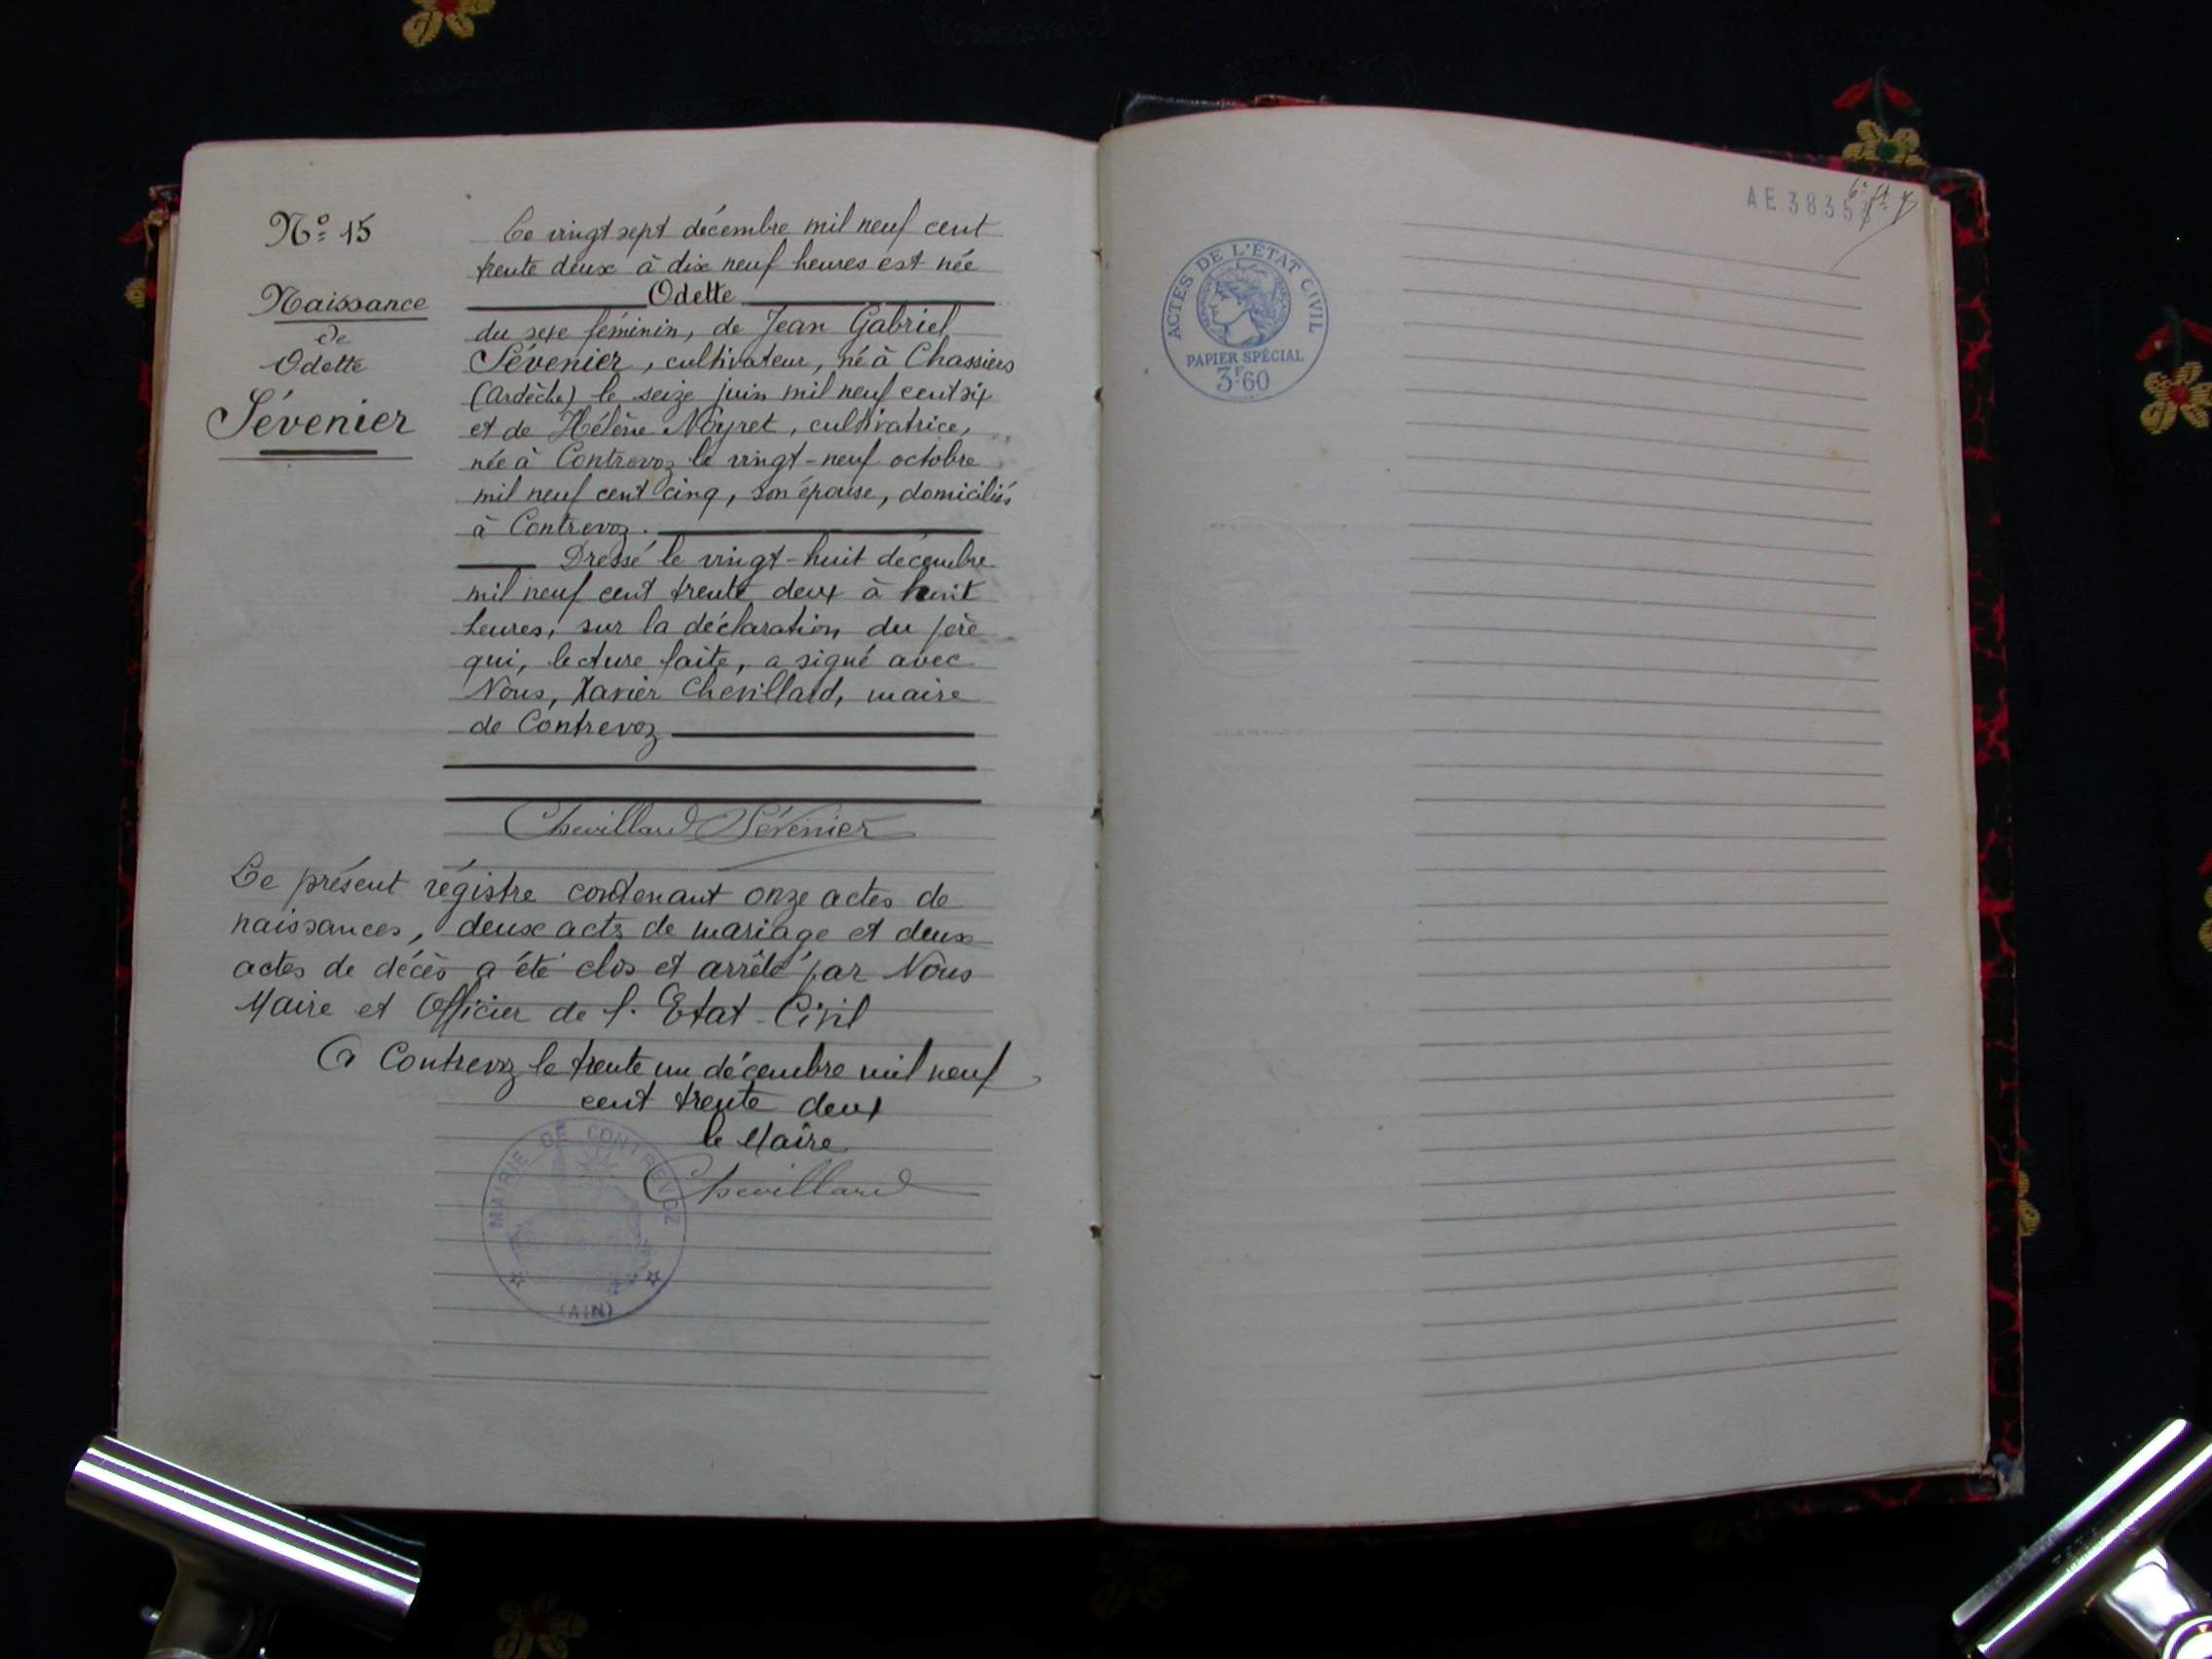 N° 15
Naissance
de
Odette
Sévenier
Le vingt sept décembre mil neuf cent
trente deux à dix neuf heures est née
Odette
du sexe féminin, de Jean Gabriel
Sévenier, cultivateur, né à Chassiers
(Ardèche) le seize juin mil neuf cent six
et de Hélène Noyret, cultivatrice,
née à Contrevoz le vingt-neuf octobre
mil neuf cent cinq, son épouse, domiciliés
à Contrevoz.
Dressé le vingt-huit décembre
mil neuf cent trente deux à huit
heures, sur la déclaration du père
qui, lecture faite, a signé avec
Nous, Xavier Chevillard, maire
de Contrevoz
Chevillard Sévenier
Le présent régistre contenant onze actes de
naissances, deux acts de mariage et deux
actes de décès a été clos et arrêté par Nous
Maire et Officier de l'Etat-Civil
A Contrevoz le trente un décembre mil neuf
cent trente deux
le Maire
Chevillard
MAIRIE DE CONTREVOZ
(AIN)
ACTES DE L'ÉTAT CIVIL
PAPIER SPÉCIAL
3F.60
AE 3835